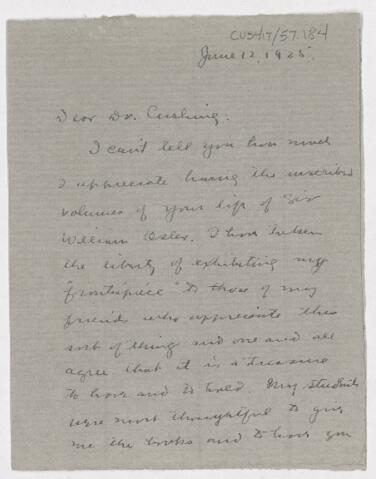 CUS417/57.184
June 12, 1925.
Dear Dr. Cushing.
I can't tell you how much
I appreciate having the inscribed
volumes of your life of Sir
William Osler. I have taken
the liberty of exhibiting my
"frontispiece" to those of my
friends who appreciate this
sort of thing and one and all
agree that it is a treasure
to have and to hold. My students
were most thoughtful to give
me the books and to have you